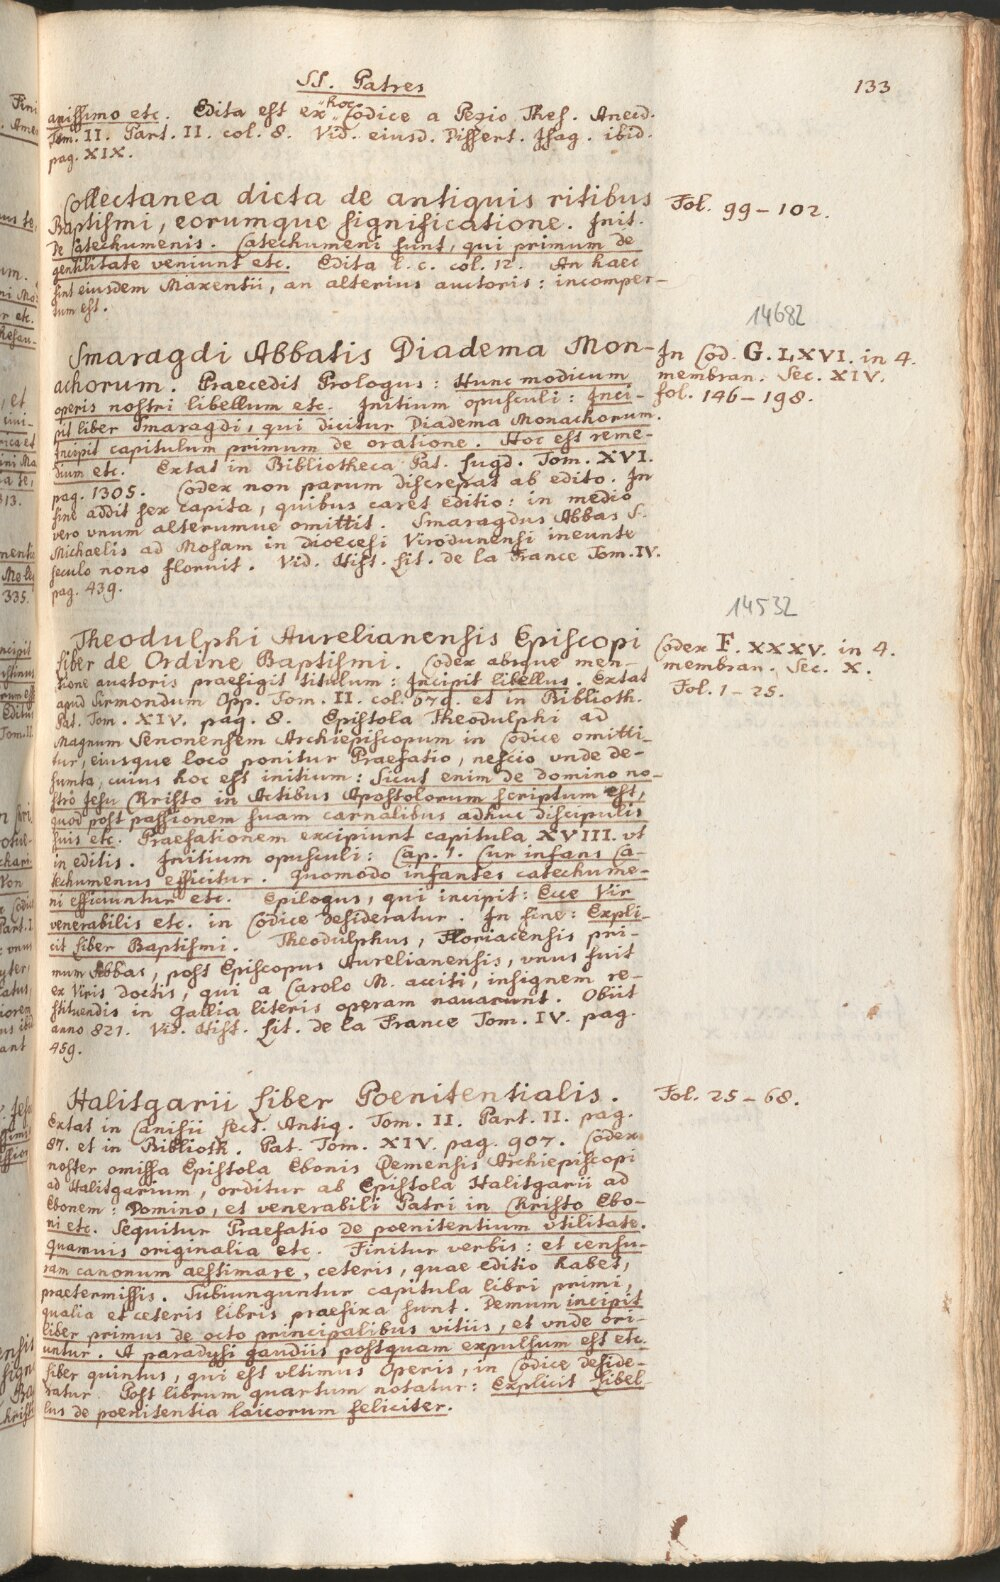 SS. Patres
133
anissimo etc. Edita est ex hoc Codice a Pezio Thes. Anecd.
Tom. II. Part. II. col. 8. Vid. eiusd. Dissert. Isag. ibid.
pag. XIX.
Collectanea dicta de antiquis ritibus
Baptismi, eorumque significatione. Init.
De Catechumenis. Catechumeni sunt, qui primum de
gentilitate veniunt etc. Edita l. c. col. 12. An haec
sint eiusdem Maxentii, an alterius auctoris: incomper-
tum est.
Fol. 99-102.
14682
Smaragdi Abbatis Diadema Mon-
achorum. Praecedit Prologus: Hunc modicum
operis nostri libellum etc. Initium opusculi: Inci-
pit liber Smaragdi, qui dicitur Diadema Monachorum.
Incipit capitulum primum de oratione. Hoc est reme-
dium etc. Extat in Bibliotheca Pat. Lugd. Tom. XVI.
pag. 1305. Codex non parum discrepat ab edito. In
fine addit sex capita, quibus caret editio: in medio
vero unum alterumue omittit. Smaragdus Abbas S.
Michaelis ad Mosam in dioecesi Virodunensi ineunte
seculo nono floruit. Vid. Hist. Lit. de la France Tom. IV.
pag. 439.
In Cod. G. LXVI. in 4.
membran. Sec. XIV.
fol. 146-198.
14532
Theodulphi Aurelianensis Episcopi
Liber de Ordine Baptismi. Codex absque men-
tione auctoris praefigit titulum: Incipit libellus. Extat
apud Sirmondum Opp. Tom. II. col. 679. et in Biblioth.
Pat. Tom. XIV. pag. 8. Epistola Theodulphi ad
Magnum Senonensem Archiepiscopum in Codice omitti-
tur, eiusque loco ponitur Praefatio, nescio unde de-
sumta, cuius hoc est initium: Sicut enim de domino no-
stro Jesu Christo in Actibus Apostolorum scriptum est,
quod post passionem suam carnalibus adhuc discipulis
suis etc. Praefationem excipiunt capitula XVIII. vt
in editis. Initium opusculi: Cap. 1. Cur infans Ca-
techumenus efficitur. Quomodo infantes catechume-
ni efficiuntur etc. Epilogus, qui incipit: Ecce Vir
venerabilis etc. in Codice desideratur. In fine: Expli-
cit Liber Baptismi. Theodulphus, Floriacensis pri-
mum Abbas, post Episcopus Aurelianensis, vnus fuit
ex Viris doctis, qui a Carolo M. acciti, insignem re-
stituendis in Gallia literis operam nauarunt. Obiit
anno 821. Vid. Hist. Lit. de la France Tom. IV. pag.
459.
Codex F. XXXV. in 4.
membran. Sec. X.
Fol. 1-25.
Halitgarii Liber Poenitentialis.
Extat in Canisii Lect. Antiq. Tom. II. Part. II. pag.
87. et in Biblioth. Pat. Tom. XIV. pag. 907. Codex
noster omissa Epistola Ebonis Remensis Archiepiscopi
ad Halitgarium, orditur ab Epistola Halitgarii ad
Ebonem: Domino, et venerabili Patri in Christo Ebo-
ni etc. Sequitur Praefatio de poenitentium vtilitate.
Quamuis originalia etc. Finitur verbis: et censu-
ram canonum aestimare, ceteris, quae editio habet,
praetermissis. Subiunguntur capitula libri primi,
qualia et ceteris libris praefixa sunt. Demum incipit
liber primus de octo principalibus vitiis, et vnde ori-
untur. A paradysi gaudiis postquam expulsum est etc.
Liber quintus, qui est vltimus Operis, in Codice deside-
ratur. Post librum quartum notatur: Explicit Libel-
lus de poenitentia laicorum feliciter.
Fol. 25-68.